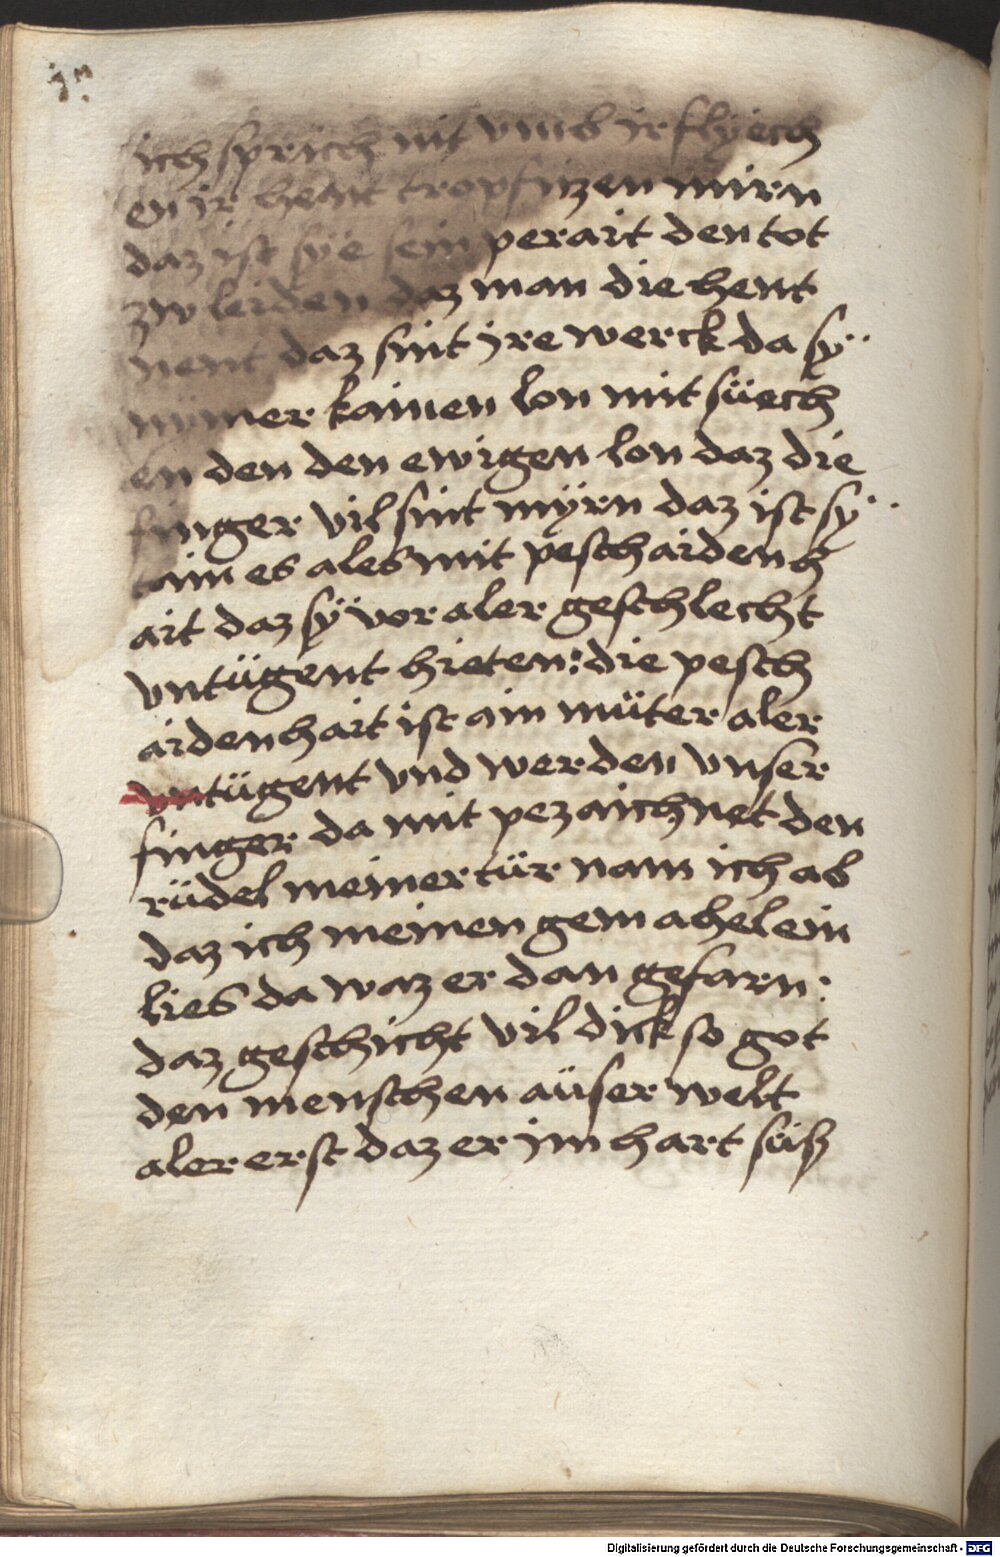 ich sprich nit vmb ir flÿech
en ir hent tropfnzen mirn
daz ist sÿe sein perait den tot
zw leiden daz man die hent
nent daz sint jre werck da sÿ
nÿmer kainen lon mit süech
en den den ewigen lon daz die
finger vil sint mÿrn daz ist sÿ
tain es ales mit peschaidenh
ait daz sÿ vor aler geschlecht
vntügent hieten: die pesch
aidenhait ist ain müter aler
vntügent vnd werden vnser
finger da mit pezaichnet den
rüdel meiner tür nam ich ab
daz ich meinen gemahel ein
lies da waz er dan gefarn:
daz geschicht vil dick so got
den menschen aüserwelt
aler erst daz er im hart süß
Digitalisierung gefördert durch die Deutsche Forschungsgemeinschaft - DFG